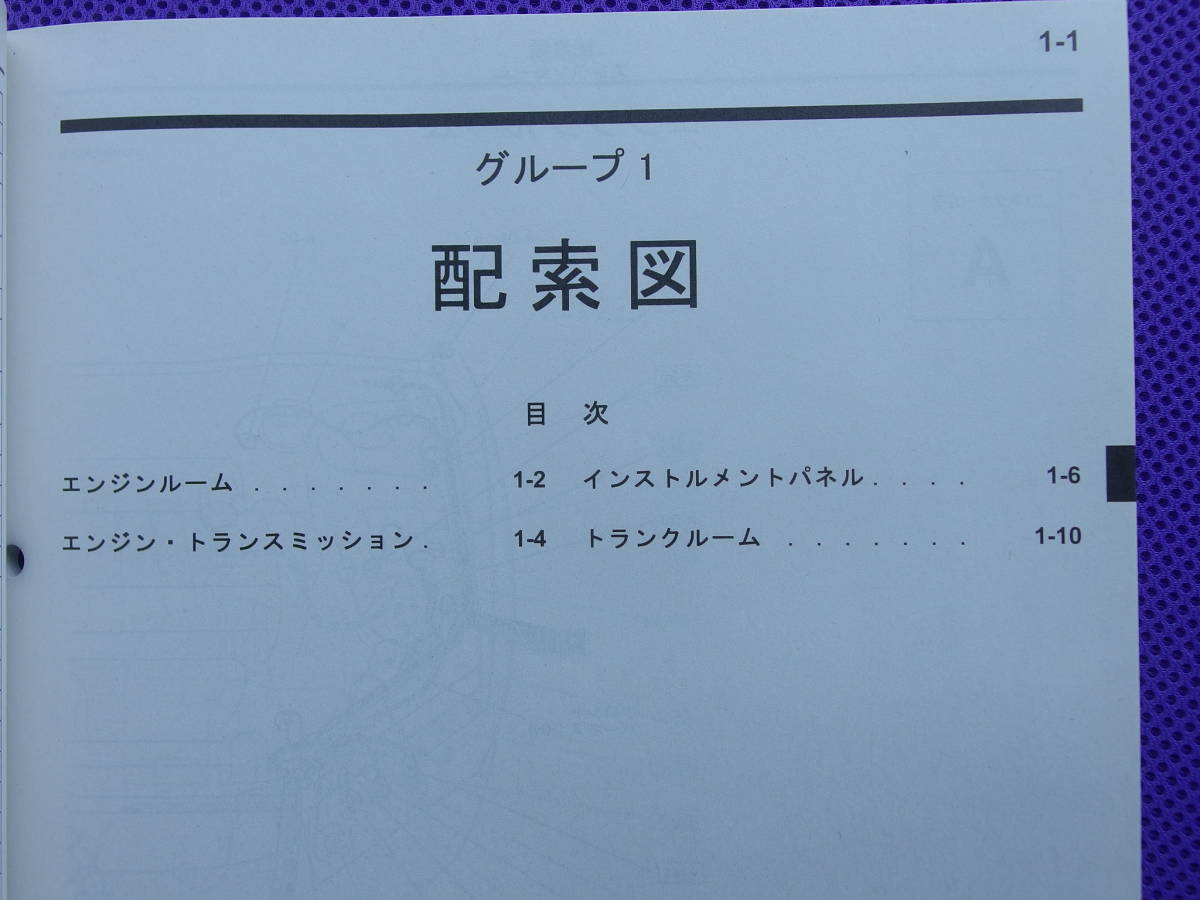 1-1
グループ 1
配索図
目 次
エンジンルーム . . . . . . . 1-2
エンジン・トランスミッション . 1-4
インストルメントパネル . . . . 1-6
トランクルーム . . . . . . . 1-10